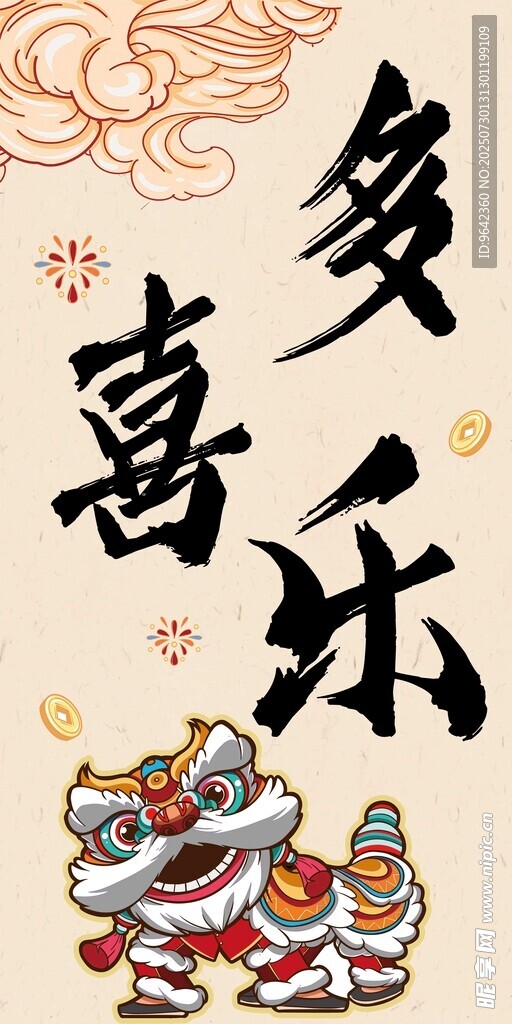 多
喜
乐
ID:9642360 NO:20250730131301199109
昵享网 www.nipic.cn